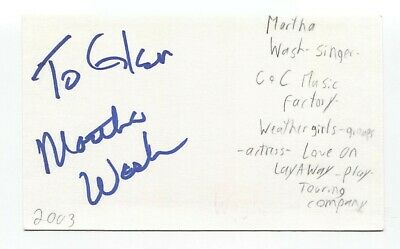 To Glen
Martha
Wash
2003
Martha
Wash-singer-
C&C Music
Factory-
Weathergirls-groups
-actress- Love On
LayAWay-play-
Touring
company